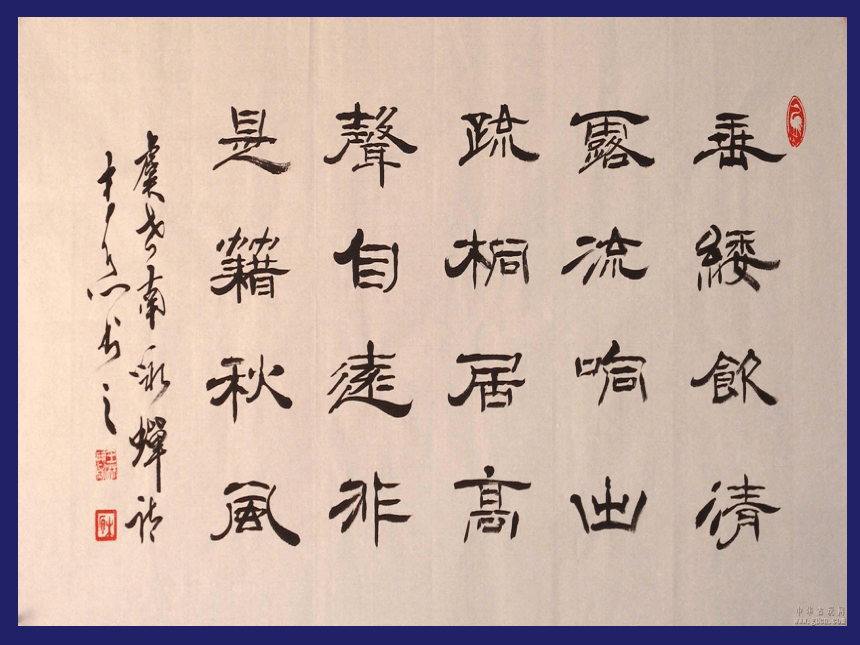 垂緌飲清
露流响出
疏桐居高
聲自遠非
是籍秋風
虞世南咏蝉诗
书之
中华古玩网
www.gucn.com